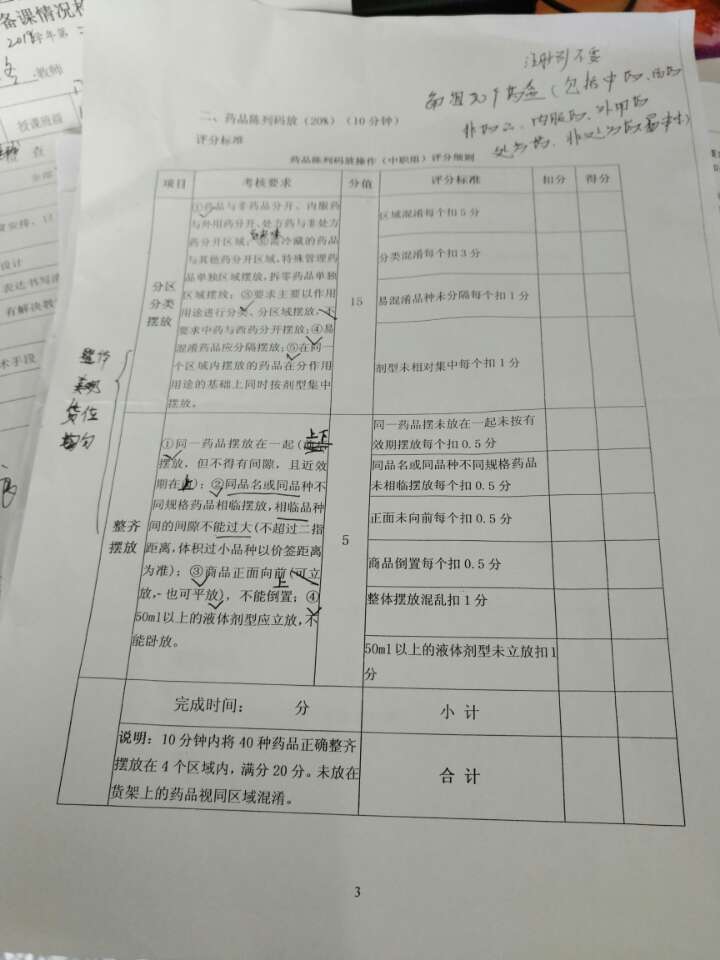 备课情况检
2018学年第
教师
授课班级
查
设计
表达书写清
有解决教
术手段
注射剂不要
每组30个药盒（包括中药、西药
非药品、内服药、外用药
处方药、非处方药
二、药品陈列码放（20%）（10分钟）
评分标准
药品陈列码放操作（中职组）评分细则
项目 考核要求 分值 评分标准 扣分 得分
分区
分类
摆放
①药品与非药品分开、内服药
与外用药分开、处方药与非处方
药分开区域；②需冷藏的药品
与其他药分开区域,特殊管理药
品单独区域摆放,拆零药品单独
区域摆放；③要求主要以作用
用途进行分类、分区域摆放,不
要求中药与西药分开摆放;④易
混淆药品应分隔摆放;⑤在同一
个区域内摆放的药品在分作用
用途的基础上同时按剂型集中
摆放。
15
区域混淆每个扣5分
分类混淆每个扣3分
易混淆品种未分隔每个扣1分
剂型未相对集中每个扣1分
货位
整齐
摆放
①同一药品摆放在一起(上下
摆放，但不得有间隙，且近效
期在上)；②同品名或同品种不
同规格药品相临摆放,相临品种
间的间隙不能过大(不超过二指
距离,体积过小品种以价签距离
为准)；③商品正面向前(可立
上
放,也可平放)，不能倒置；④
50ml以上的液体剂型应立放,不
能卧放。
5
同一药品摆未放在一起未按有
效期摆放每个扣0.5分
同品名或同品种不同规格药品
未相临摆放每个扣0.5分
正面未向前每个扣0.5分
商品倒置每个扣0.5分
整体摆放混乱扣1分
50ml以上的液体剂型未立放扣1
分
完成时间： 分 小 计
说明：10分钟内将40种药品正确整齐
摆放在4个区域内，满分20分。未放在
货架上的药品视同区域混淆。
合 计
3